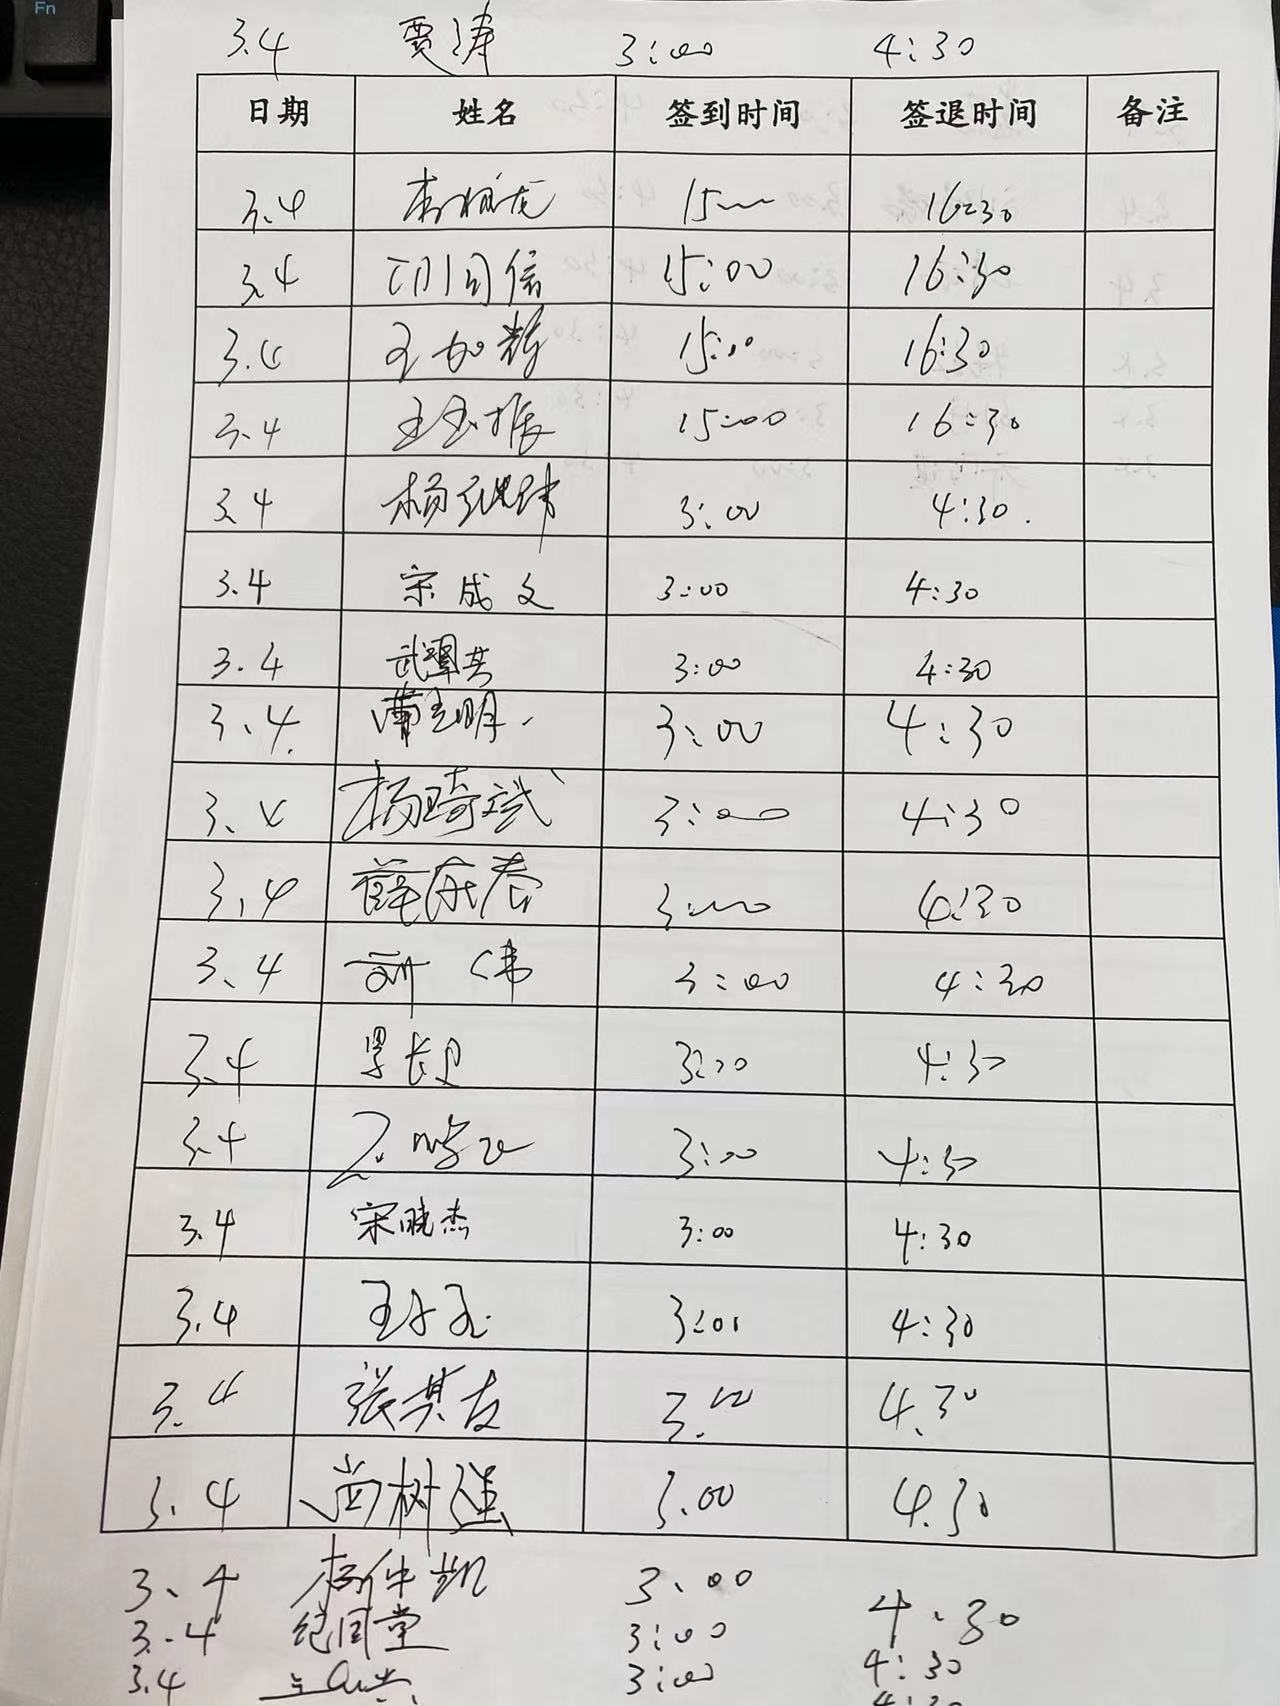 Fn
3.4 贾涛 3:00 4:30
日期 姓名 签到时间 签退时间 备注
3.4 15:00 16:30
3.4 15:00 16:30
3.4 王加辉 15:00 16:30
3.4 王玉振 15:00 16:30
3.4 杨继伟 3:00 4:30.
3.4 宋成文 3:00 4:30
3.4 3:00 4:30
3.4. 3:00 4:30
3.4 杨琦斌 3:00 4:30
3.4 薛东春 3:00 4:30
3.4 3:00 4:30
3.4 3:00 4:30
3.4 3:00 4:30
3.4 宋晓杰 3:00 4:30
3.4 3:01 4:30
3.4 张其友 3.00 4.30
3.4 尚树 3.00 4.30
3.4 杨仲凯 3.00 4.30
3.4 纪同堂 3:00 4:30
3.4 3:00